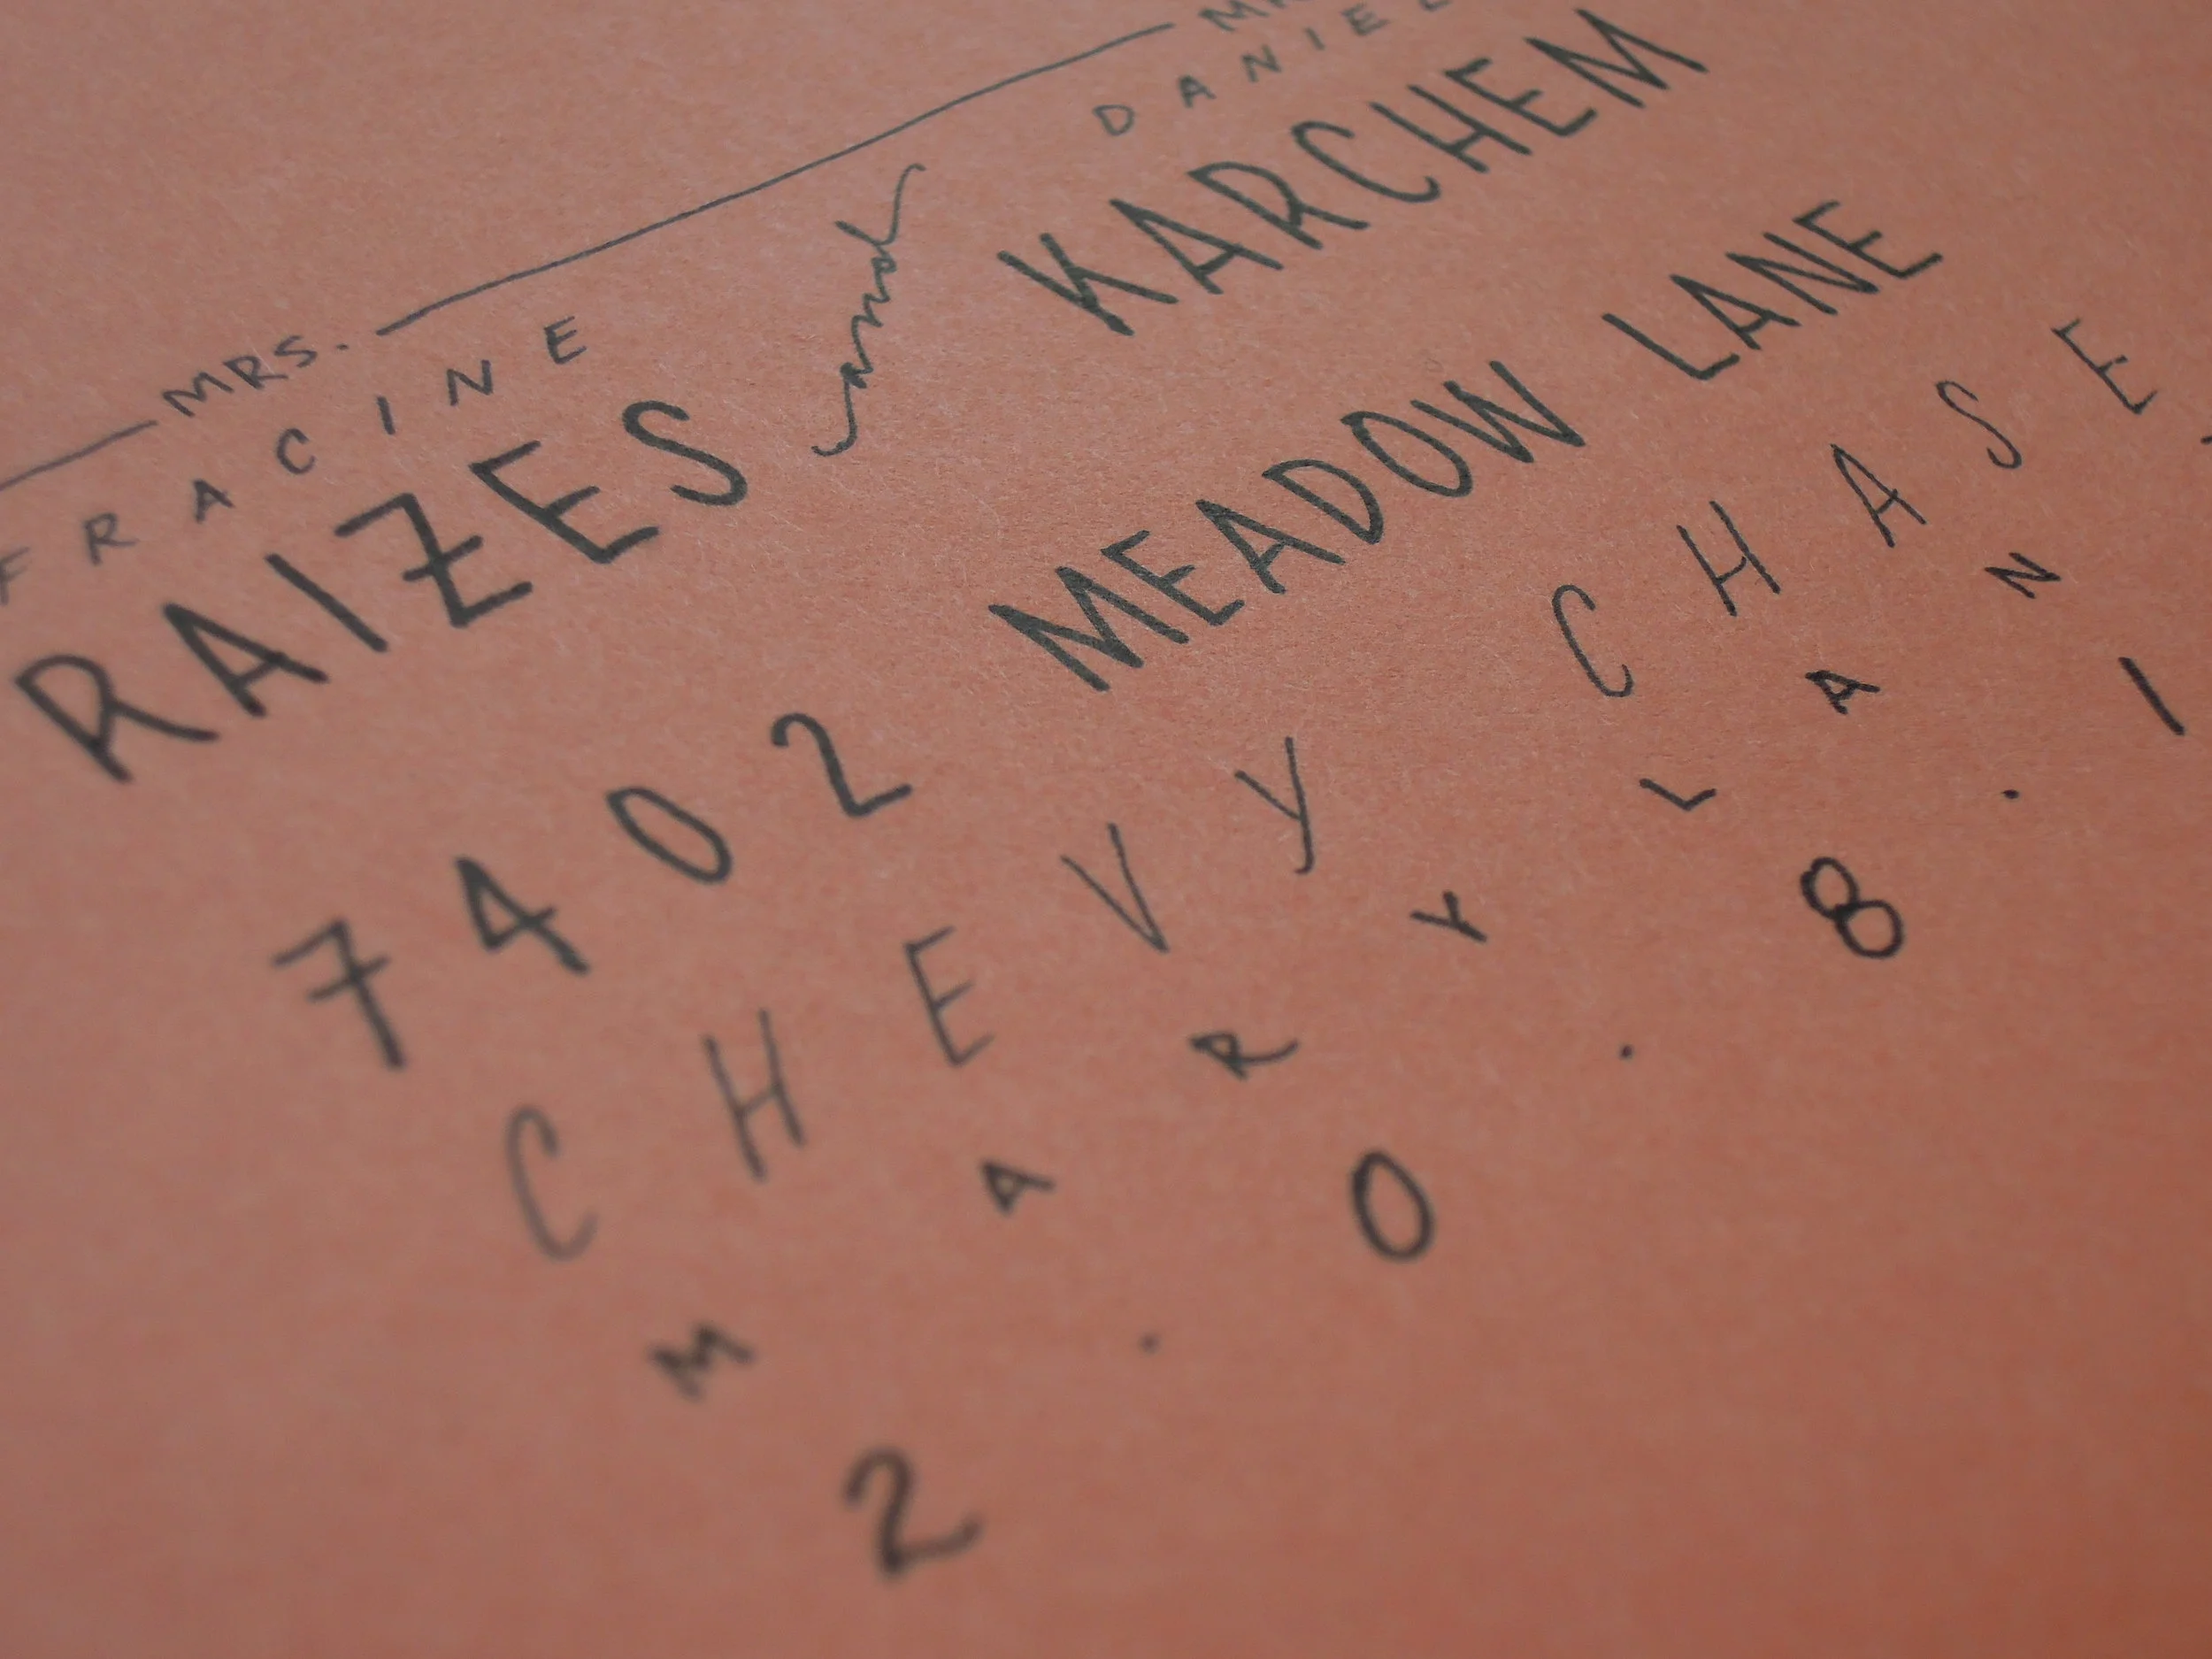 MRS.
FRACINE DANIEL
RAIZES and KARCHEM
7402 MEADOW LANE
CHEVY CHASE
MARYLAN
2 . 0 . 8 . 1